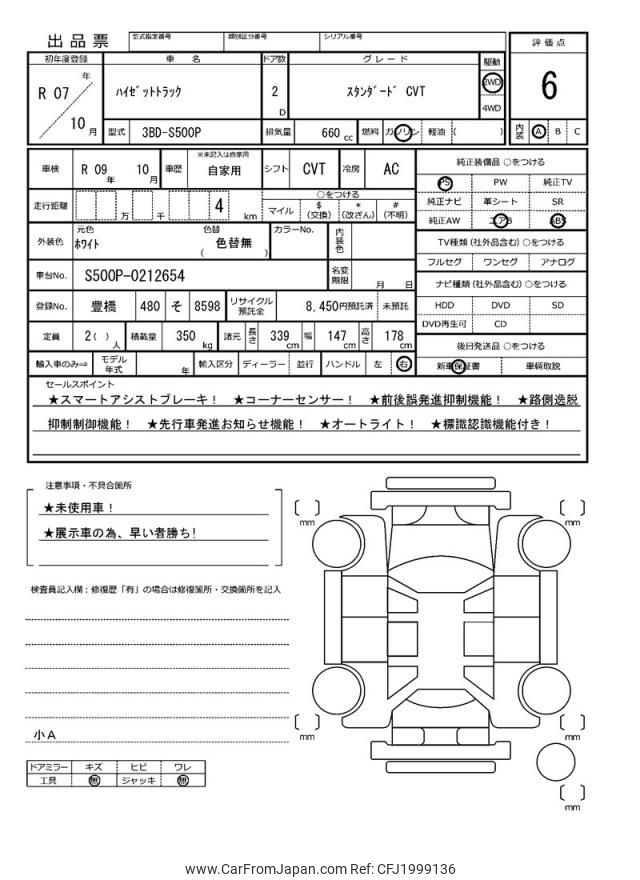 出品票 型式指定番号 類別区分番号 シリアル番号 評価点
初年度登録 車名 ドア数 グレード 駆動
R 07 年 ハイゼットトラック 2 D スタンダード CVT 2WD 6
10 月 4WD
型式 3BD-S500P 排気量 660 cc 燃料 ガソリン 軽油 ( ) 内装 A B C
車検 R 09 年 10 月 車歴 ※未記入は自家用 自家用 シフト CVT 冷房 AC 純正装備品 ○をつける
PS PW 純正TV
走行距離 万 千 4 km ○をつける 純正ナビ 革シート SR
マイル $(交換) *(改ざん) #(不明) 純正AW エアB ABS
外装色 元色 ホワイト 色替 ( 色替無 ) カラーNo. 内装色 TV種類(社外品含む)○をつける
フルセグ ワンセグ アナログ
車台No. S500P-0212654 名変期限 月 日 ナビ種類(社外品含む)○をつける
登録No. 豊橋 480 そ 8598 リサイクル預託金 8,450円預託済 未預託 HDD DVD SD
DVD再生可 CD
定員 2( )人 積載量 350 kg 諸元 長さ 339 cm 幅 147 cm 高さ 178 cm 後日発送品 ○をつける
輸入車のみ⇒ モデル年式 年 輸入区分 ディーラー 並行 ハンドル 左 右 新車保証書 車輌取説
セールスポイント
★スマートアシストブレーキ! ★コーナーセンサー! ★前後誤発進抑制機能! ★路側逸脱
抑制制御機能! ★先行車発進お知らせ機能! ★オートライト! ★標識認識機能付き!
注意事項・不具合箇所
★未使用車!
★展示車の為、早い者勝ち!
検査員記入欄:修復歴「有」の場合は修復箇所・交換箇所を記入
小A
ドアミラー キズ ヒビ ワレ
工具 無 ジャッキ 無
mm
mm
mm
mm
mm
www.CarFromJapan.com Ref: CFJ1999136